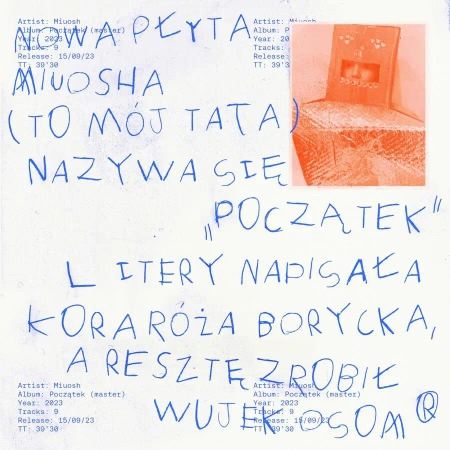 Artist: Miuosh
Album: Początek (master)
Year: 2023
Tracks: 9
Release: 15/09/23
TT: 39'30
Artist: Miuosh
Album: P
Year: 20
Tracks:
Release: 15/09/23
TT: 39'30
NOWA PŁYTA
MIUOSHA
(TO MÓJ TATA)
NAZYWA SIĘ
„POCZĄTEK"
LITERY NAPISAŁA
KORA RÓŻA BORYCKA,
A RESZTĘ ZROBIŁ
WUJEK OSOM®
Artist: Miuosh
Album: Początek (master)
Year: 2023
Tracks: 9
Release: 15/09/23
TT: 39'30
Artist: Miuosh
Album: Początek (master)
Year: 2023
Tracks: 9
Release: 15/09/23
TT: 39'30